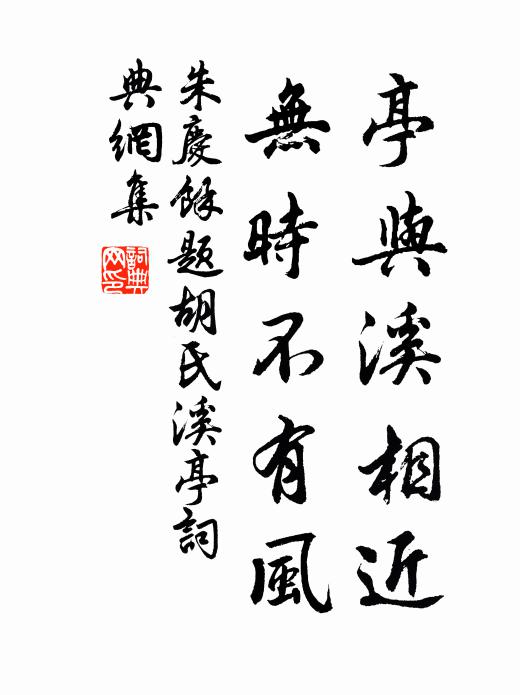 亭與溪相近
無時不有風
朱慶餘題胡氏溪亭詞
典網集
詞典
网印